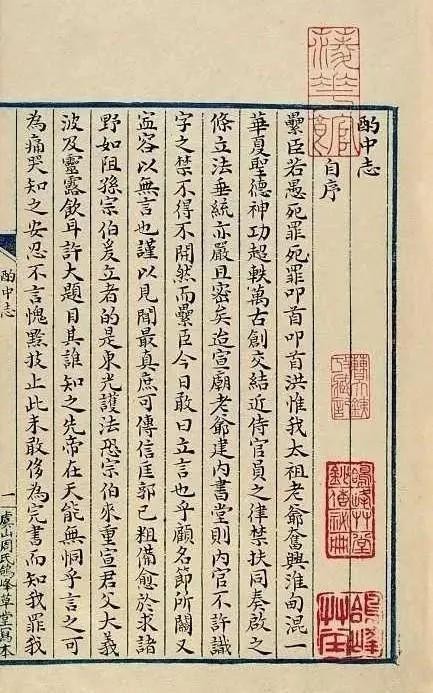 酌中志
自序
纍臣若愚死罪死罪叩首叩首洪惟我太祖老爺奮興淮甸混一
華夏聖德神功超軼萬古創交結近侍官員之律禁扶同奏啟之
條立法垂統亦嚴且密矣迨宣廟老爺建內書堂則內官不許識
字之禁不得不開然而纍臣今日敢曰立言也乎顧名節所關又
寧容以無言也謹以見聞最真庶可傳信匡郭已粗備愈於求諸
野如阻孫宗伯爰立者的是東光護法恐宗伯來重宣君父大義
波及靈露飲耳許大題目其誰知之先帝在天能無恫乎言之可
為痛哭知之安忍不言愧黔技止此未敢侈為完書而知我罪我
酌中志
一
虞山周氏鴿峰草堂寫本
鴿峰草堂
鈔傳祕冊
鴿峰
草堂